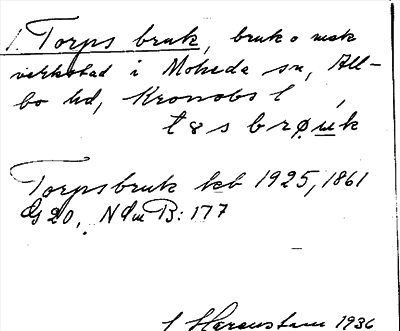 1. Torps bruk, bruk o mek
verkstad i Moheda sn, All-
bo hd, Kronobs l,
t8s brøuk
Torpsbruk keb 1925, 1861
G 20, NGm B: 177
J Harenstam 1936